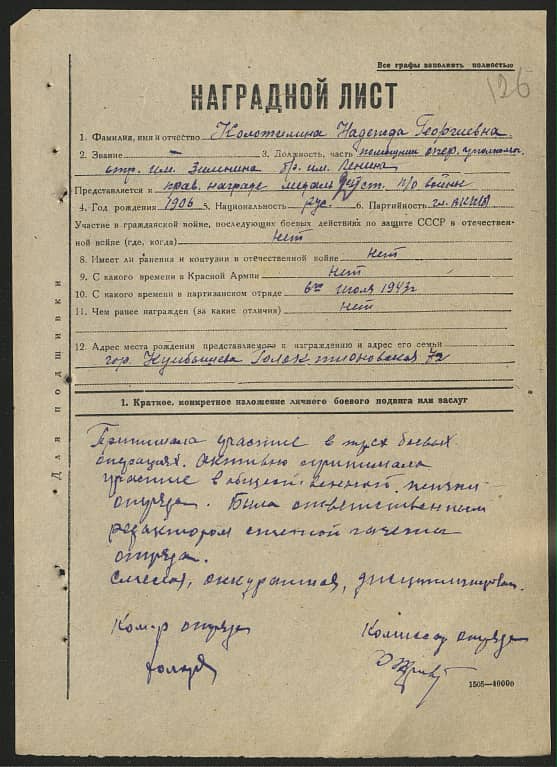 Все графы заполнять полностью
126
НАГРАДНОЙ ЛИСТ
1. Фамилия, имя и отчество Надежда Георгиевна
2. Звание — 3. Должность, часть помощник опер. уполном.
отр. им. бр. им. Ленина
Представляется к прав. награде медаль
4. Год рождения 1906 5. Национальность рус. 6. Партийность чл. ВКП(б)
Участие в гражданской войне, последующих боевых действиях по защите СССР в отечествен-
ной войне (где, когда) нет
8. Имеет ли ранения и контузии в отечественной войне нет
9. С какого времени в Красной Армии нет
10. С какого времени в партизанском отряде июля 1943г
11. Чем ранее награжден (за какие отличия) нет
12. Адрес места рождения представляемого к награждению и адрес его семьи
гор. Куйбышева 72
1. Краткое, конкретное изложение личного боевого подвига или заслуг
Принимала участие в трех боевых
операциях. Активно принимала
участие в общественной жизни
отряда. Была ответственным
редактором стенной газеты
отряда.
Смелая, аккуратная,
Ком-р отряда Комиссар отряда
1505—40000
Для подшивки